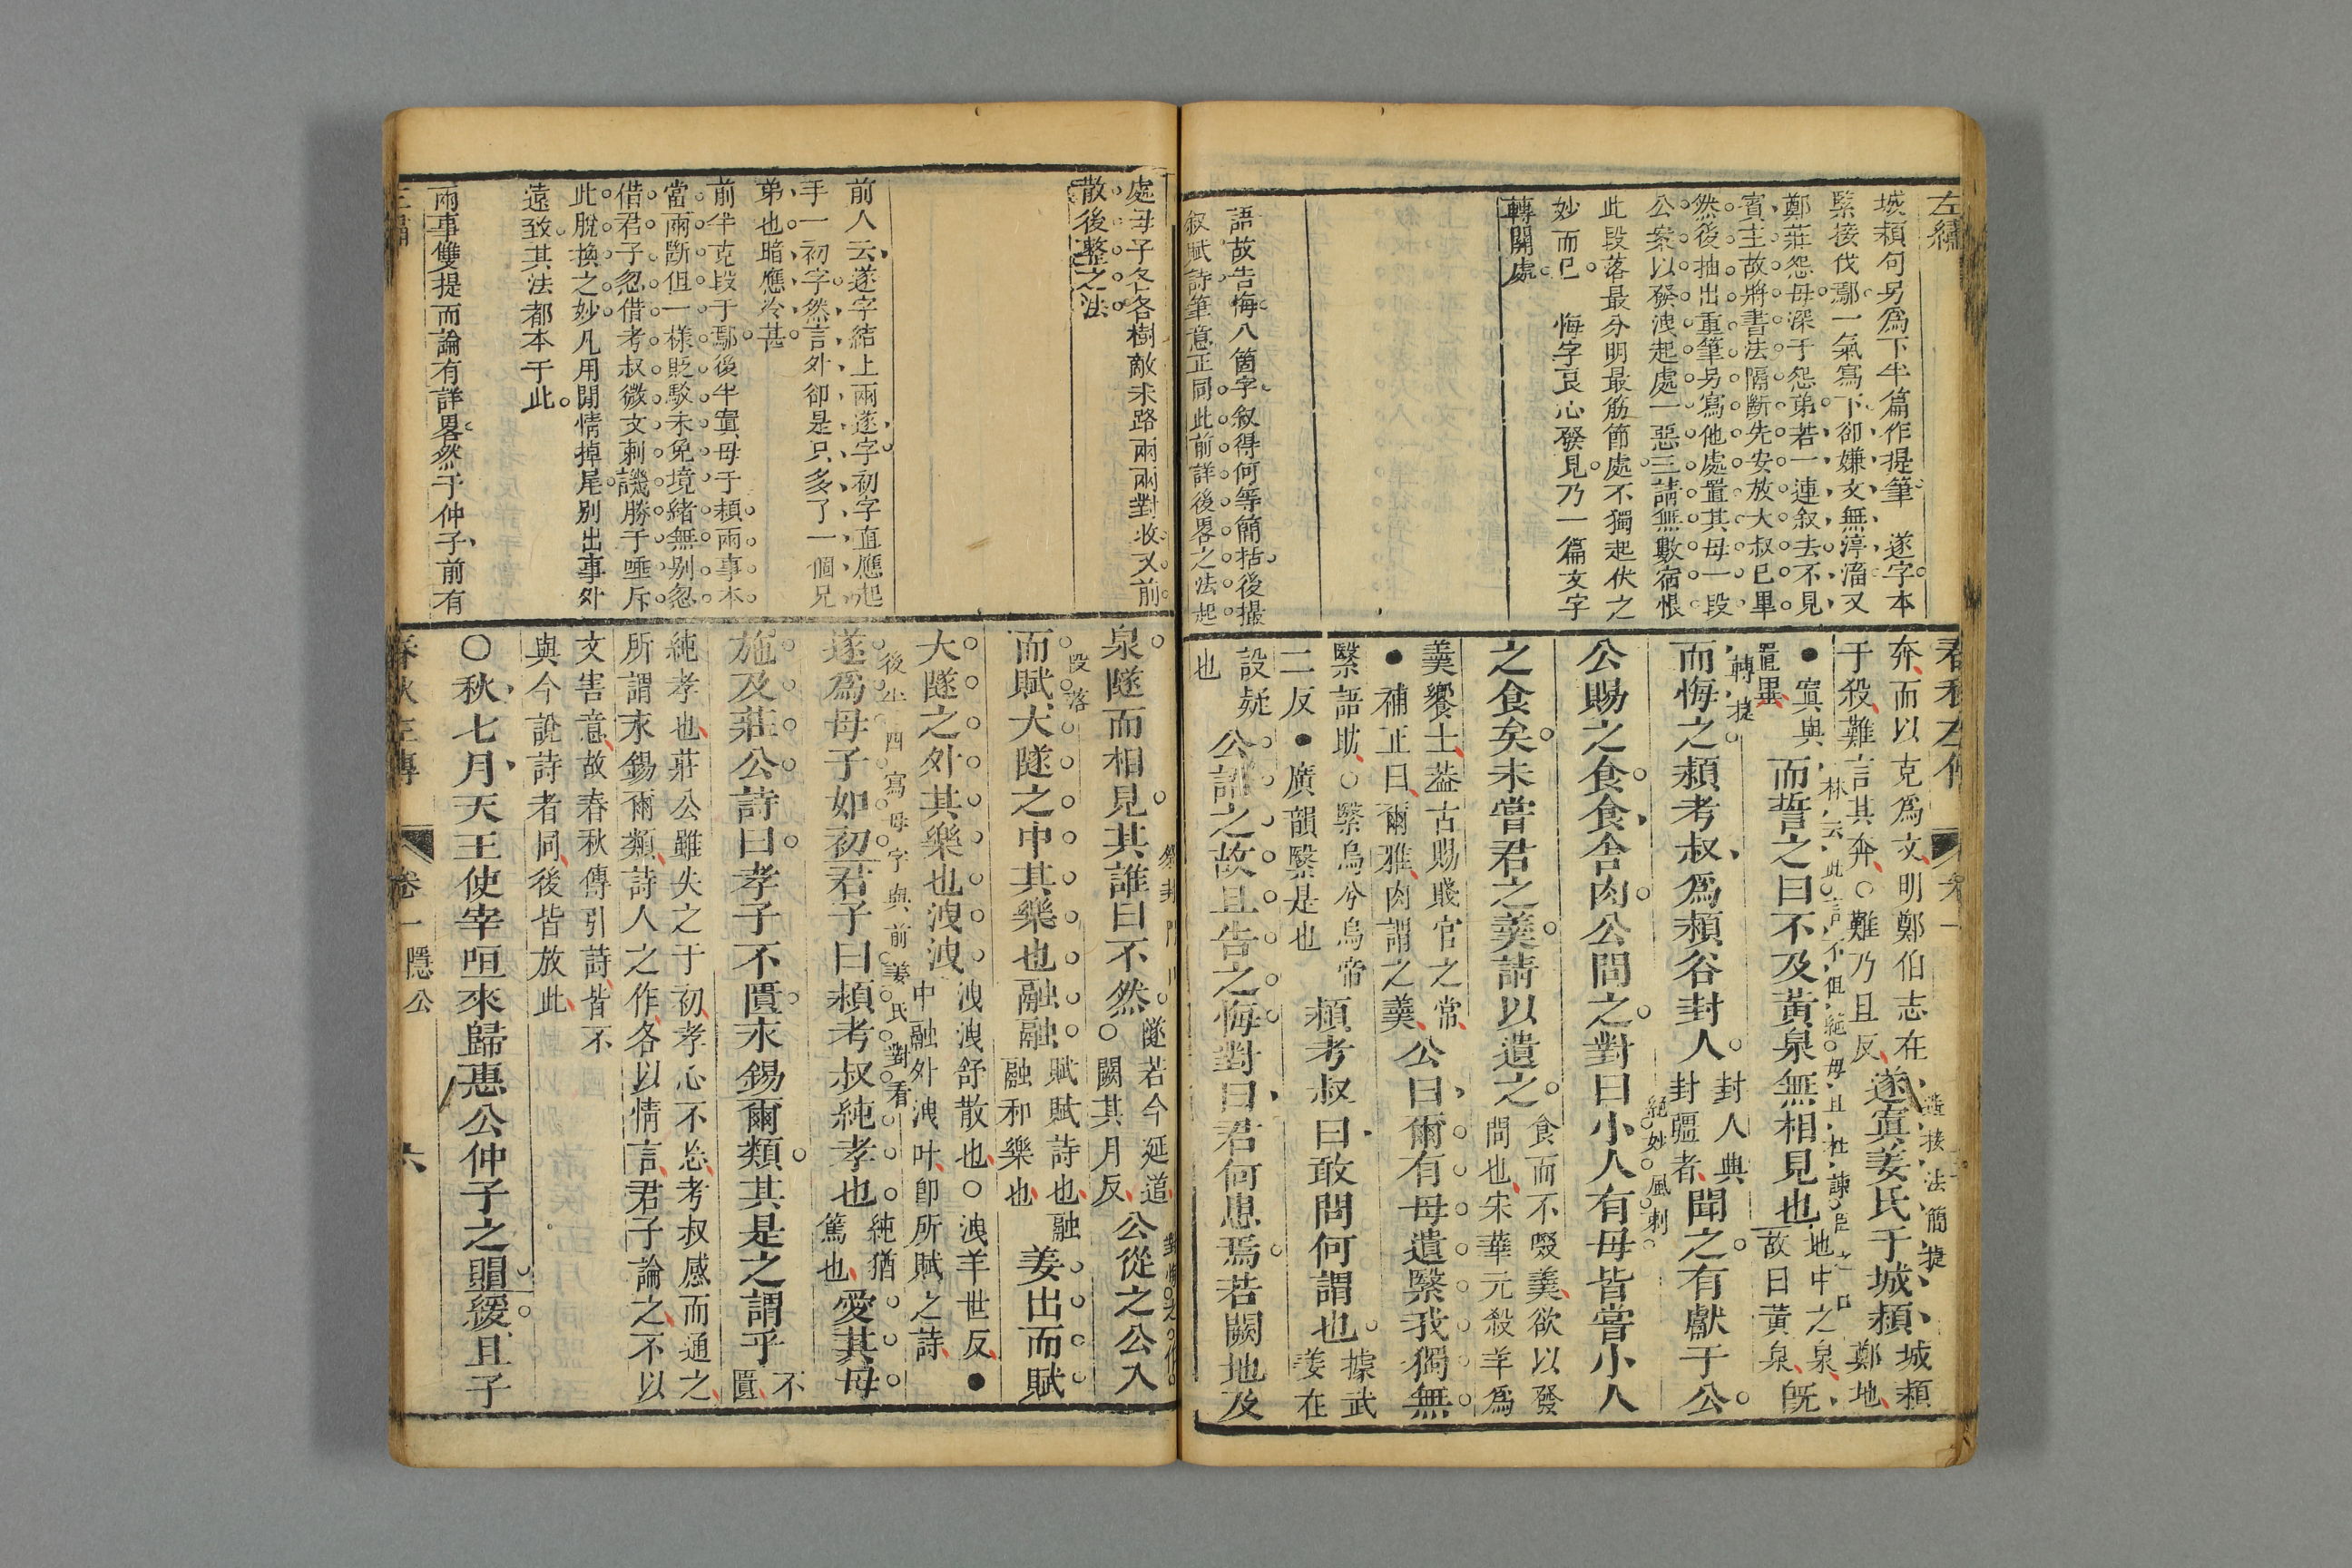 左繡
城潁句另爲下半篇作提筆　遂字本
緊接伐鄢一氣寫下卻嫌文無渟滀又
鄭莊怨母深于怨弟若一連敘去不見
賓主故將書法隔斷先安放大叔已畢
然後抽出重筆另寫他處置其母一段
公案以發洩起處一惡三請無數宿恨
此段落最分明最筋節處不獨起伏之
妙而已　悔字良心發見乃一篇文字
轉關處
語故告悔八箇字敘得何等簡括後撮
敘賦詩筆意正同此前詳後畧之法起
奔而以克爲文明鄭伯志在
于殺難言其奔○難乃且反
遂寘姜氏于城潁
城潁
鄭地
遥接法簡捷
●寘與
置畢
而誓之曰不及黃泉無相見也
地中之泉
故曰黃泉
既
而悔之潁考叔爲潁谷封人
轉捷
封人典
封疆者
聞之有獻于公
公賜之食食舍肉公問之對曰小人有母皆嘗小人
絕妙風刺
之食矣未嘗君之羹請以遺之
食而不啜羹欲以發
問也宋華元殺羊爲
羹饗士葢古賜賤官之常
●補正曰爾雅肉謂之羹
公曰爾有母遺繄我獨無
繄語助○繄烏兮烏帝
二反●廣韻繄是也
潁考叔曰敢問何謂也
據武
姜在
設疑
也
公語之故且告之悔對曰君何患焉若闕地及
處母子各各樹敵末路兩兩對收又前
散後整之法
前人云遂字結上兩遂字初字直應起
手一初字然言外卻是只多了一個兄
弟也暗應冷甚
前半克段于鄢後半寘母于潁兩事本
當兩斷但一樣貶駁未免境緒無别忽
借君子忽借考叔微文刺譏勝于唾斥
此脫換之妙凡用閒情掉尾别出事外
遠致其法都本于此
兩事雙提而論有詳畧然于仲子前有
泉隧而相見其誰曰不然
隧若今延道
○闕其月反
公從之公入
而賦大隧之中其樂也融融
段落
賦賦詩也融
融和樂也
姜出而賦
大隧之外其樂也洩洩
洩洩舒散也○洩羊世反●
中融外洩叶卽所賦之詩
遂爲母子如初君子曰潁考叔純孝也
後半四寫母字與前姜氏對看
純猶
篤也
愛其母
施及莊公詩曰孝子不匱永錫爾類其是之謂乎
不
匱
純孝也莊公雖失之于初孝心不忘考叔感而通之
所謂永錫爾類詩人之作各以情言君子論之不以
文害意故春秋傳引詩皆不
與今說詩者同後皆放此
○秋七月天王使宰咺來歸惠公仲子之賵緩且子
春秋左傳　卷一　隱公　六